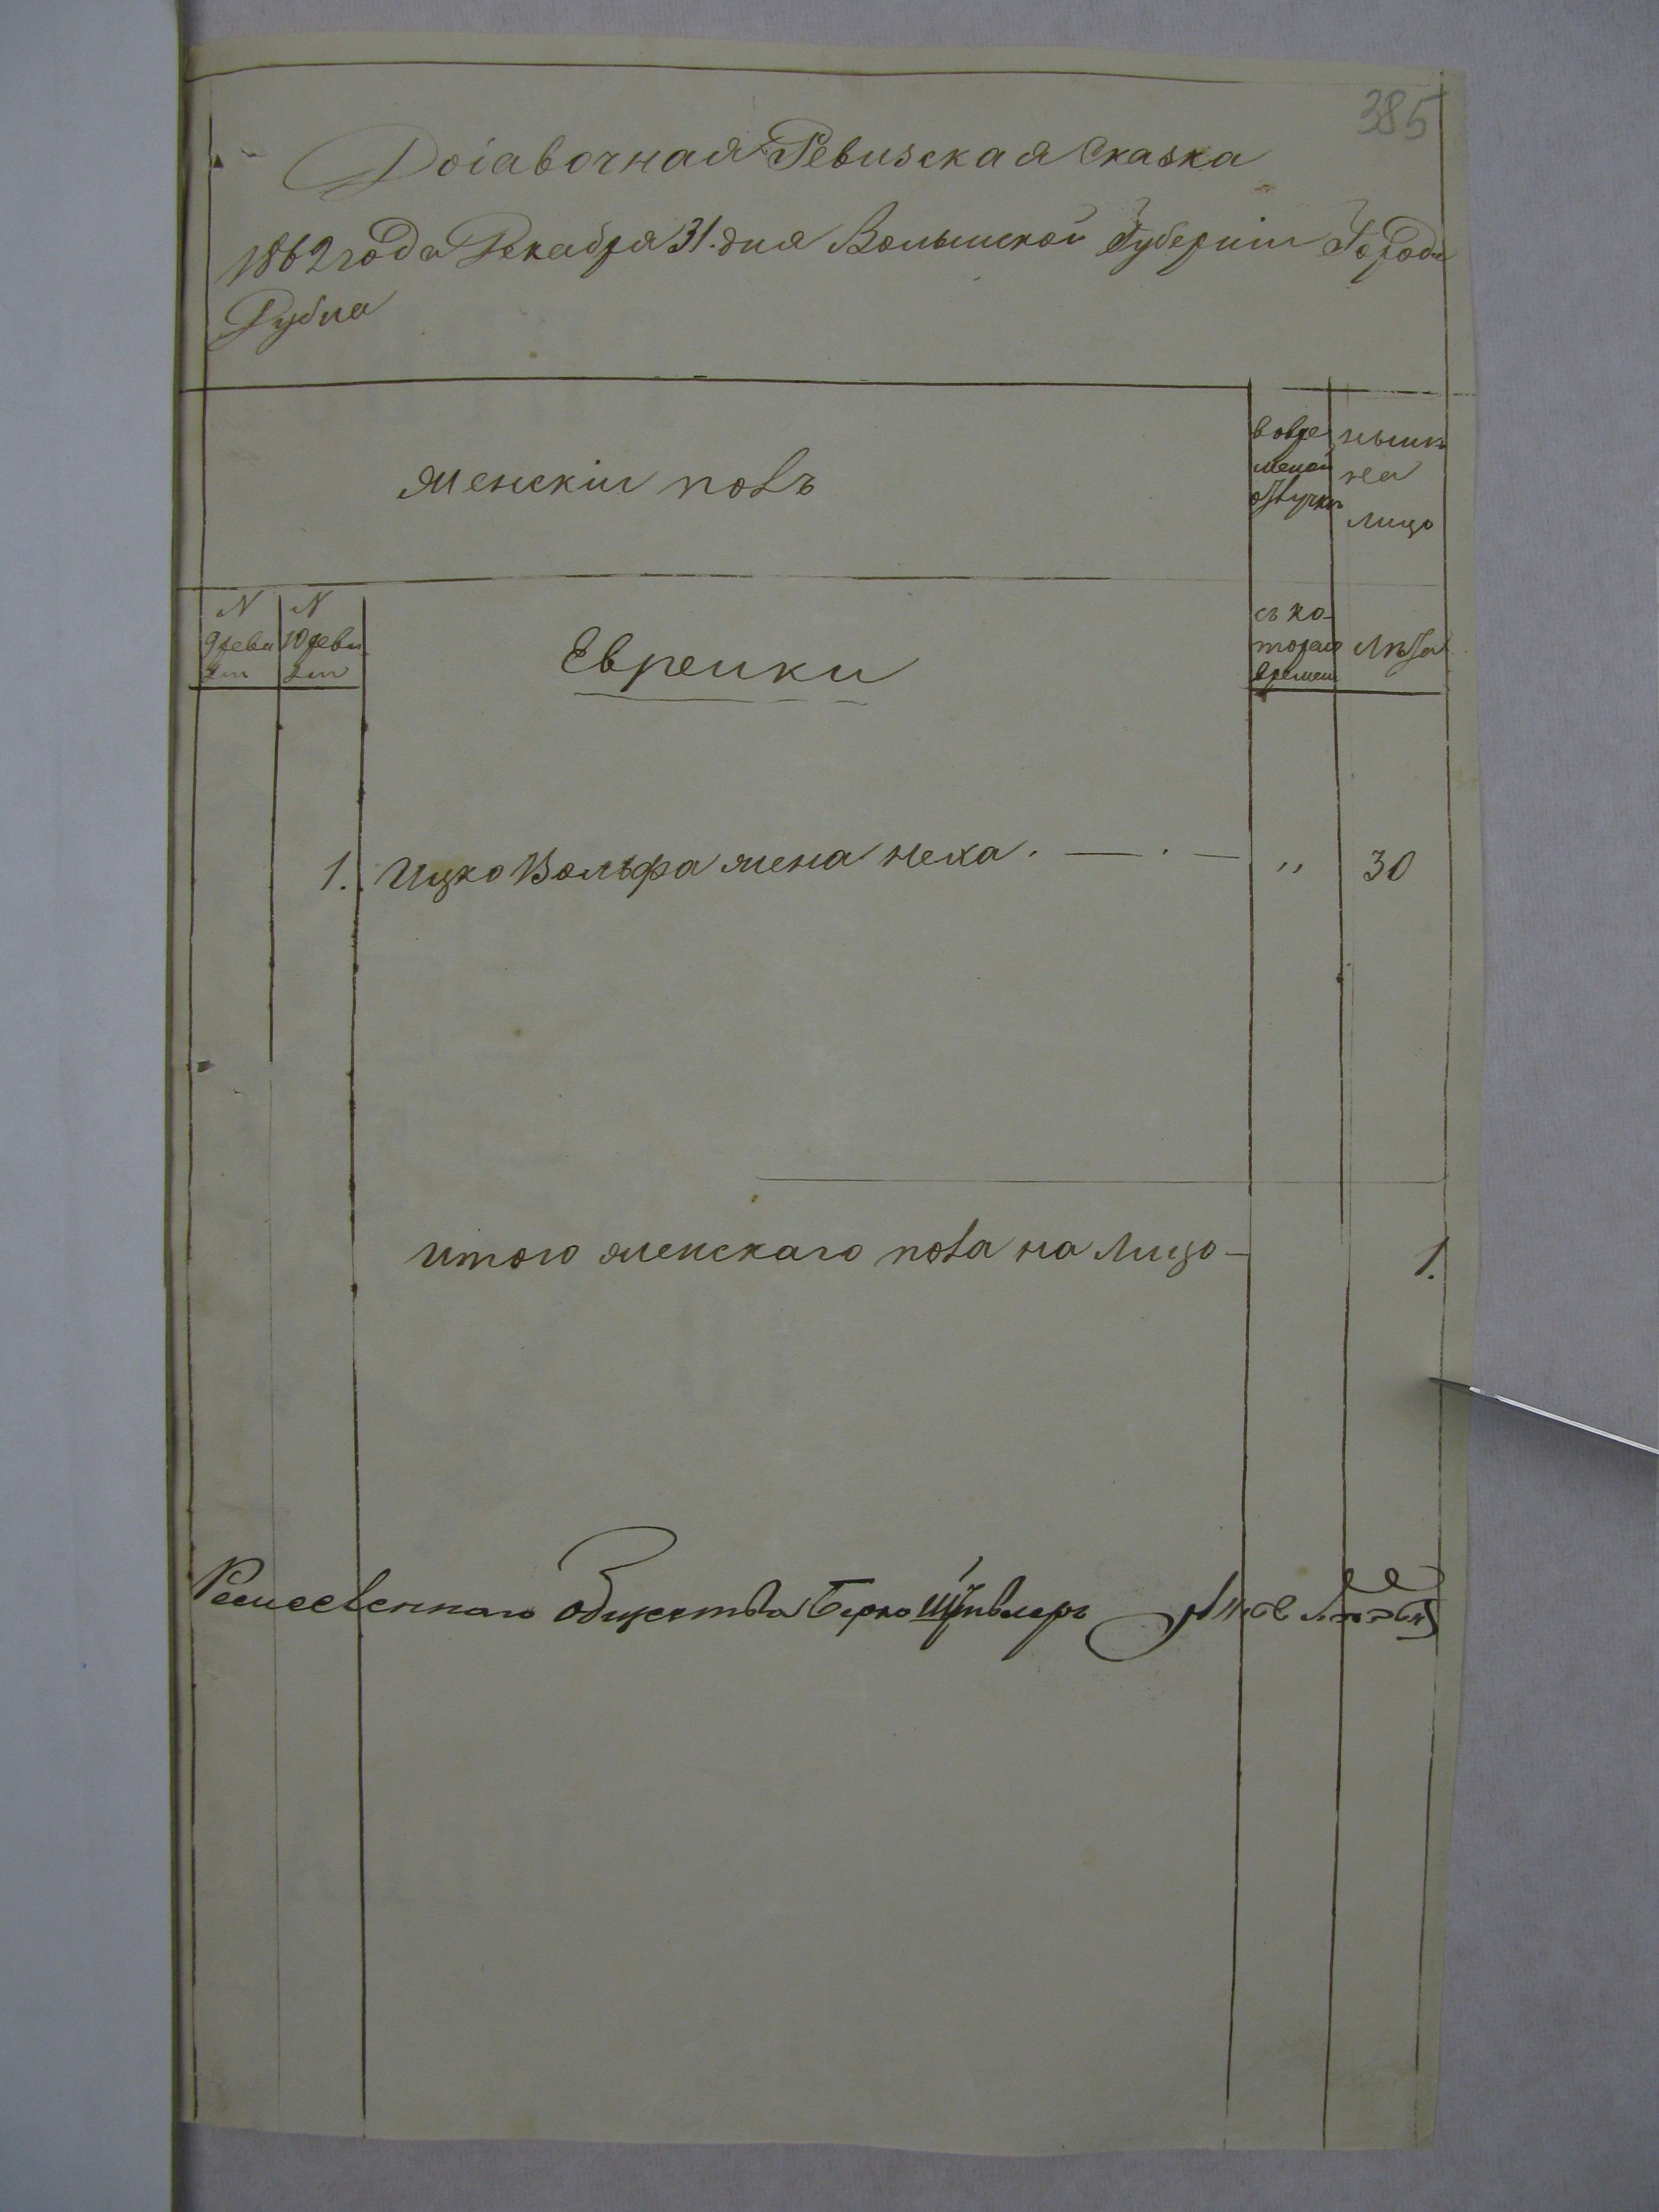 385
Добавочная Ревизская Сказка
1862 года Декабря 31. дня Волынской Губерніи Города
Дубна
женскій полъ
вовре
меной
отлучкѣ
нынѣ
на
лицо
N
9 реви
зіи
N
10 реви
зіи
Евреики
съ ко-
тораго
времени
Лѣта
1. Ицко Вольфа жена Неха. — . — " 30
итого женскаго пола на Лицо — 1.
Ремесленнаго Общества Берко